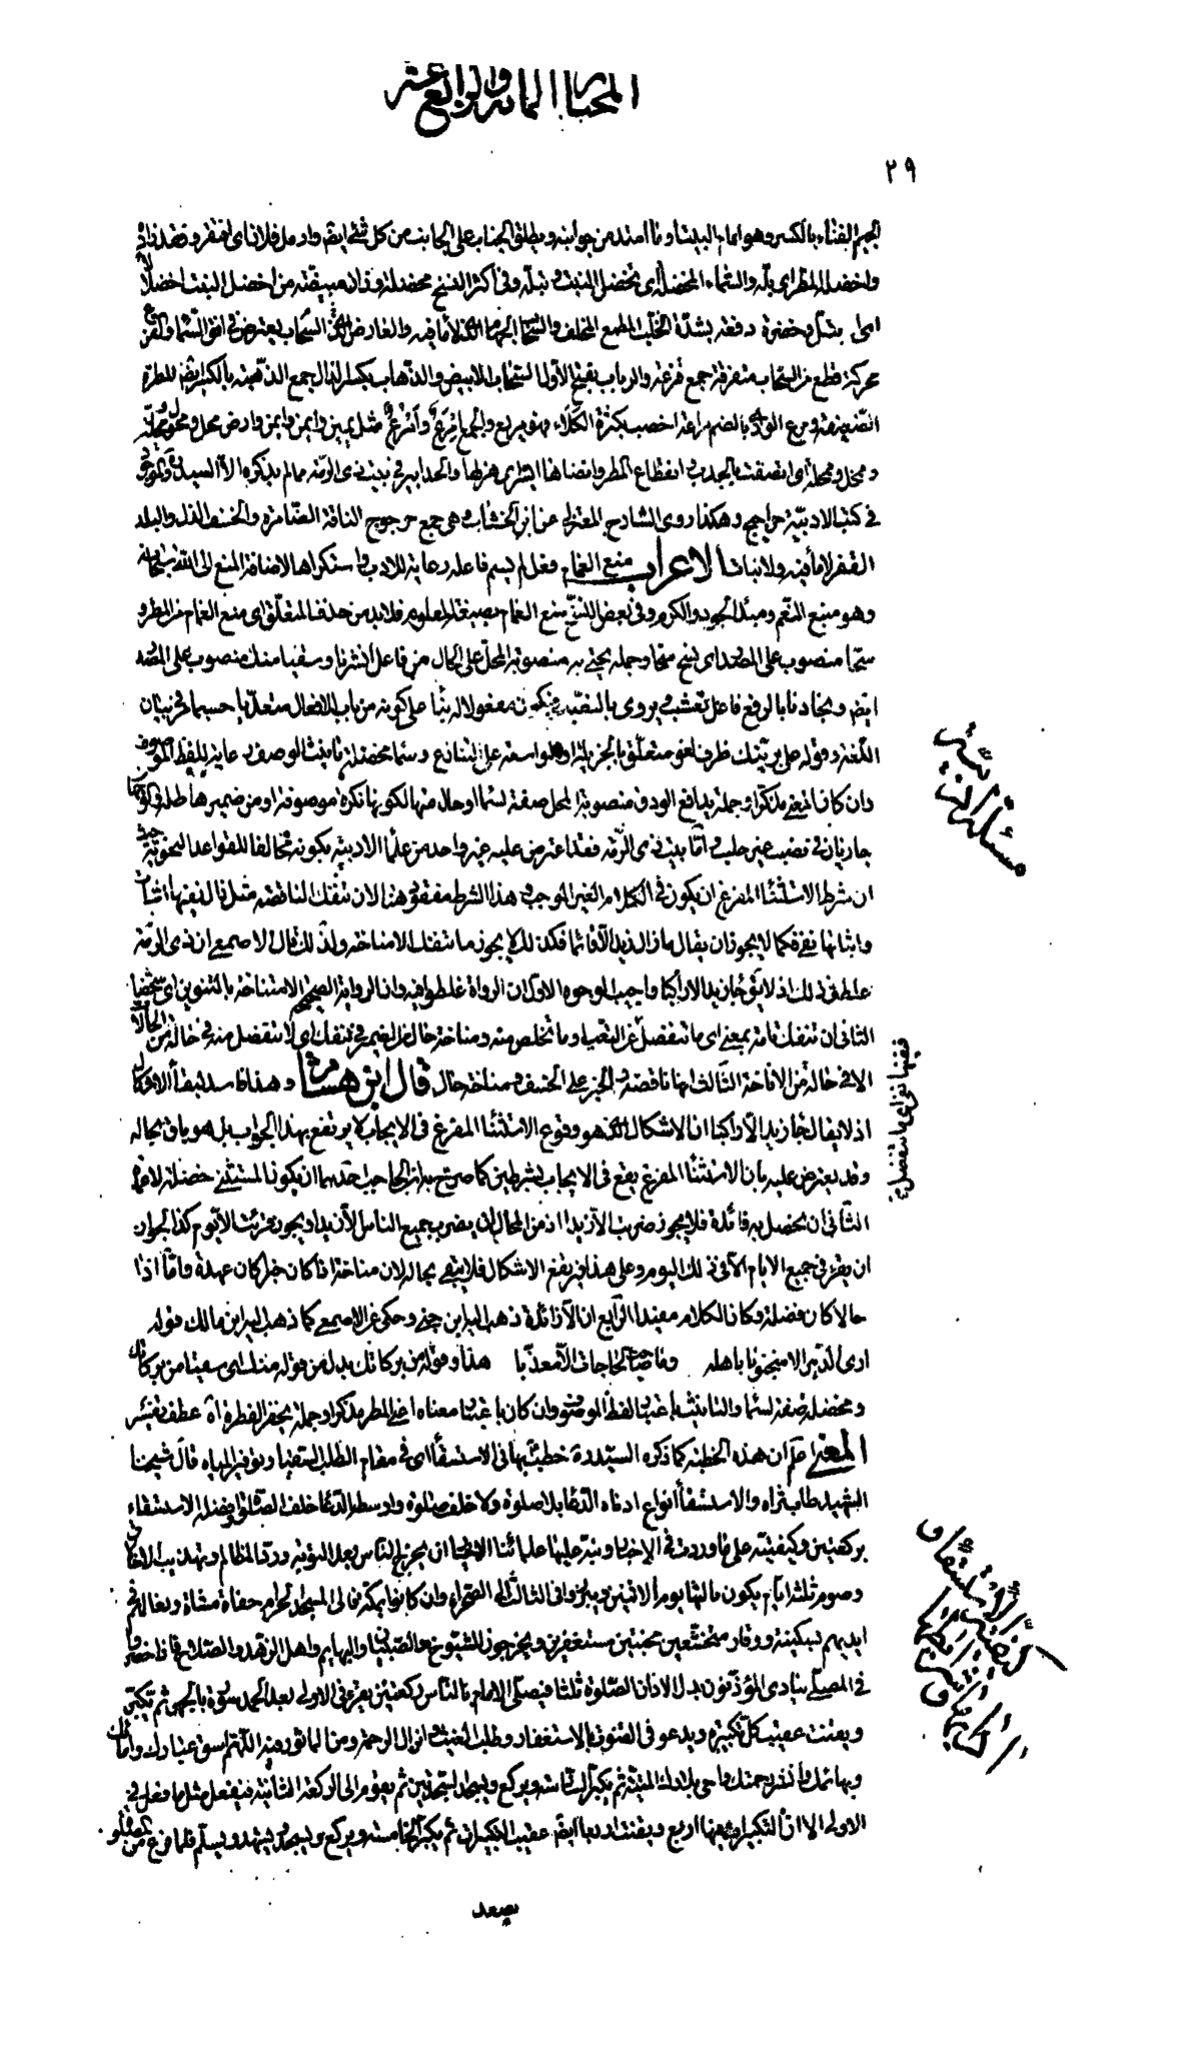 المختار المائة والرابع عشر
٢٩
الجيم الفناء بالكسر وهو امام البيت وما امتد من جوانبه ويطلق الجناب على الجانب من كل شئ ايضا وارمل فلان اى افتقر وفقد زاده
واخضله المطر اى بلّه والسماء المخضلة اى تخضل النبت وتبلّه وفى اكثر النسخ مخضلة وزان مبيضّة من اخضل النبت اخضلالا
اى ابتلّ وخضرة دفعه بشدّة الخلّب المطمع المخلف والسحاب الجهام الذى لا ماء فيه والعارض السحاب يعترض فى افق السماء والقزع
محركة قطع من السحاب متفرقة جمع قزعة والرباب بفتح الاول السحاب الابيض والذهاب بكسر الذال جمع الذهبة بالكسر ايضا المطرة
الضعيفة ومرع الوادى بالضم مراعة اخصب بكثرة الكلاء فهو مريع والجمع امرع وامراع مثل يمين وايمن وايمان وارض محل ومحول
ومحل ومحلة اى اتصفت بالجدب انقطاع المطر وانضاها السير اى هزلها والحدابير فى بيت ذى الرّمة مما لم يذكره الا السيد والموجود
فى كتب الادبيّة حراجيج وهكذا روى الشارح المعتزلى عن ابن الخشاب وهى جمع حرجوج الناقة الضامرة والخسف الذل والبلد
القفر لا ماء فيه ولا نبات الاعراب منع الغمام فعل لم يسم فاعله رعاية للادب واستكراها لاضافة المنع الى الله سبحانه
وهو منبع النعم ومبدء الجود والكرم وفى بعض النسخ منع الغمام بصيغة المعلوم فلا بد من حذف المتعلق اى منع الغمام من المطر و
سحّا منصوب على المصدر اى تسح سحا وجملة تحيى به منصوبة المحل على الحال من فاعل انشر وسقيا منك منصوب على المصدر
ايضا ونجادنا بالرفع فاعل تعشب ويروى بالنصب فيكون مفعولا له بناء على كونه من باب الافعال متعديا حسبما مر فى بيان
اللغة وقوله على بريتك ظرف لغو متعلق بالجزيلة او الواسعة على التنازع وسماء مخضلة تانيث الوصف رعاية للفظ الموصوف
وان كان المعنى مذكرا وجملة يدافع الودق منصوبة المحل صفة لسماء او حال منها لكونها نكرة موصوفة او من ضميرها
جاريان فى نصب غير خلّب وامّا بيت ذى الرّمة فقد اعترض عليه غير واحد من علماء الادبيّة بكونه مخالفا للقواعد النحوية حيث
ان شرط الاستثناء المفرغ ان يكون فى الكلام الغير الموجب وهذا الشرط مفقود هنا لان تنفك الناقصة مثل زال نفيها اثبات
واثباتها نفى فكما لا يجوز ان يقال ما زال زيد الا قائما فكذلك لا يجوز ما تنفك الا مناخة ولذلك قال الاصمعى ان ذى الرمة
غلط فى ذلك اذ لا يقال جاء زيد الا راكبا واجيب بوجوه الاول ان الرواة غلطوا فيه وان الرواية الصحيح الا مناخة بالتنوين اى شخصا
الثانى ان تنفك تامة بمعنى اى ما تنفصل عن التعب او ما تخلص منه ومناخة حال من الضمير فى تنفك اى لا تنفصل منه فى حال من الحالات
الا فى حالة من الاناخة الثالث انها ناقصة والخبر على الخسف ومناخة حال قال ابن هشام وهذا فاسد لبقاء الاشكال
اذ لا يقال جاء زيد الا راكبا اذ الاشكال الذى هو وقوع الاستثناء المفرغ فى الايجاب لا يرتفع بهذا الجواب بل هو باق بحاله
وقد يعترض عليه بان الاستثناء المفرغ يقع فى الايجاب بشرطين كما صرح به ابن الحاجب احدهما ان يكون المستثنى فضلة لا عمدة
الثانى ان يحصل به فائدة فلا يجوز ضربت الا زيدا اذ من المحال ان يضرب جميع الناس الا زيدا ويجوز قرئت الا يوم كذا لجواز
ان يقرء فى جميع الايام الا فى ذلك اليوم وعلى هذا فيرتفع الاشكال فلا يبقى بحاله لان مناخة اذا كان خبرا كان عمدة واما اذا
حالا كان فضلة وكان الكلام مفيدا الرابع ان الا زائدة ذهب اليه ابن جنى وحكى عن الاصمعى كما ذهب اليه ابن مالك قوله
ارى الدهر الا منجنونا باهله وما صاحب الحاجات الا معذبا هذا وقوله من بركاتك بدل من قوله منك اى سقيا من بركاتك
ومخضلة صفة لسماء والتانيث باعتبار لفظ الموصوف وان كان باعتبار معناه اعنى المطر مذكرا وجملة يحفز القطر اه عطف تفسير
المعنى اعلم ان هذه الخطبة كما ذكره السيد ره خطب بها فى الاستسقاء اى فى مقام الطلب السقيا وتوفير المياه قال شيخنا
الشهيد طاب ثراه والاستسقاء انواع ادناه الدعاء بلا صلوة ولا خلف صلوة واوسطه الدعاء خلف الصلوة وافضله الاستسقاء
بركعتين وكيفيته على ما وردت فى الاخبار ونبّه عليها علمائنا الاخيار ان يخرج الناس بعد التوبة وردّ المظالم وتهذيب الاخلاق
وصوم ثلثة ايام يكون ثالثها يوم الاثنين ويبرزوا فى الثالث الى الصحراء وان كانوا بمكة فالى المسجد الحرام حفاة مشاة ونعالهم فى
ايديهم بسكينة ووقار متخشعين مخبتين مستغفرين ويخرجون الشيوخ والصبيان والبهايم واهل الزهد والصلاح فاذا حضروا
فى المصلى ينادى المؤذنون بدل الاذان الصلوة ثلثا فيصلى الامام بالناس ركعتين يقرء فى الاولى بعد الحمد سورة بالجهر ثم يكبر
ويقنت عقيب كل تكبيرة ويدعو فى القنوت بالاستغفار وطلب الغيث وانزال الرحمة ومن الماثور فيه اللهم اسق عبادك وامائك
وبهائمك وانشر رحمتك واحى بلادك الميتة ثم يكبر السادسة ويركع ويسجد السجدتين ثم يقوم الى الركعة الثانية فيفعل مثل ما فعل فى
الاولى الا ان التكبيرات فيها اربع ويقنت اربعا ايضا عقيب التكبيرات ثم يكبر الخامسة ويركع ويسجد ويتشهد ويسلم فلما فرغ من الصلوة
يصعد
مسئلة ادبيّة
فنفيها نفى اى ما تنفصل
الاستسقاء